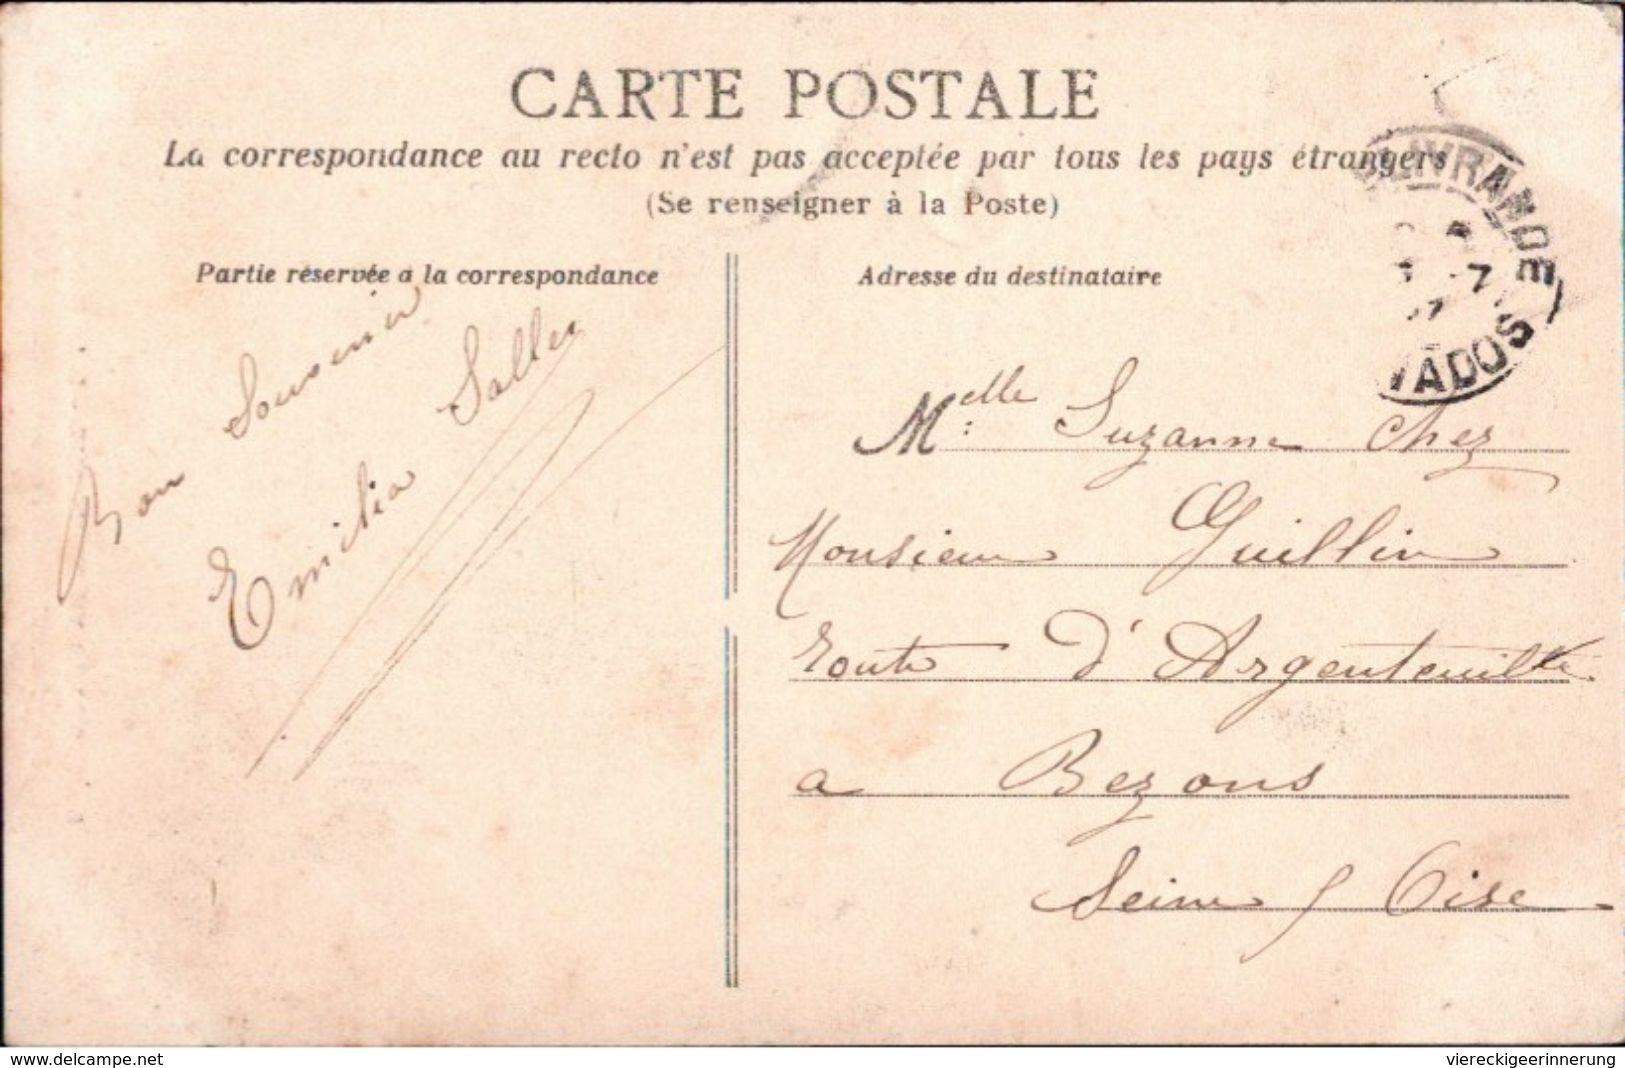 CARTE POSTALE
La correspondance au recto n'est pas acceptée par tous les pays étrangers
(Se renseigner à la Poste)
Partie réservée à la correspondance
Bon Souvenir
Emilia Salles
Adresse du destinataire
Melle Suzanne chez
Monsieur Guillin
route d'Argenteuille
a Bezons
Seine / Oise
LIVRANDE
7
VADOS
www.delcampe.net
viereckigeerinnerung